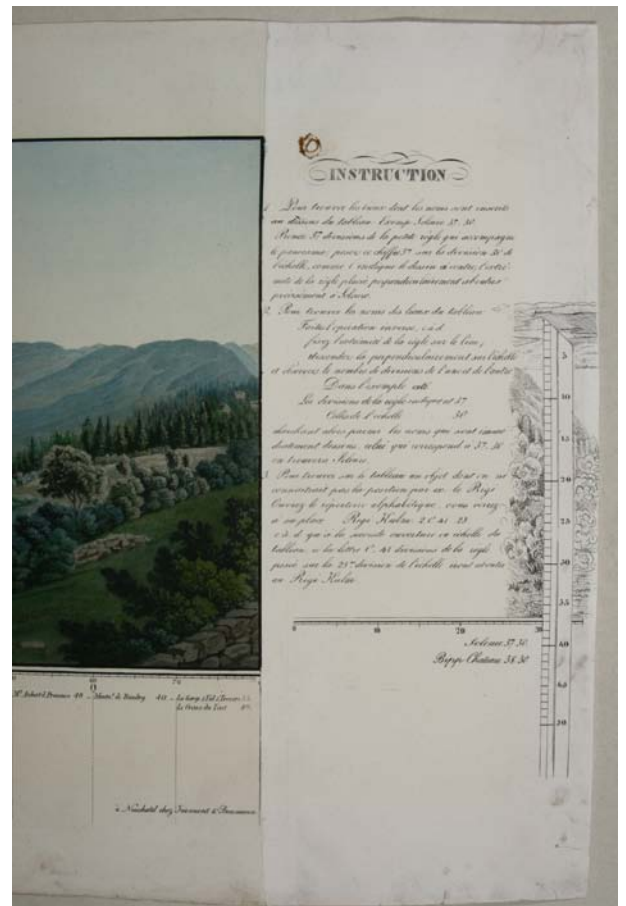 INSTRUCTION
1. Pour trouver les lieux dont les noms sont inscrits
au dessous du tableau. Exemp. Soleure 37. 30
Prenez 37 divisions de la petite règle qui accompagne
le panorama, posez ce chiffre 37 sur la division 30 de
l'échelle, comme l'indique le dessin ci contre, l'extré-
mité de la règle placée perpendiculairement aboutira
précisément à Soleure.
2. Pour trouver les noms des lieux du tableau
Faites l'opération inverse, c.à.d.
fixez l'extrémité de la règle sur le lieu,
descendez la perpendiculairement sur l'échelle
et observez le nombre de divisions de l'une et de l'autre
Dans l'exemple cité
Les divisions de la règle indiquent 37
Celles de l'échelle 30
cherchant alors parmi les noms qui sont immé-
diatement dessous, celui qui correspond à 37. 30
on trouvera Soleure.
3. Pour trouver sur le tableau un objet dont on ne
connaitrait pas la position par ex. le Rigi
Ouvrez le répertoire alphabétique, vous verrez
à sa place Rigi Kulm 2 C. 41 23
c.à.d. qu'à la seconde ouverture ou échelle du
tableau, à la lettre C. 41 divisions de la règle
posée sur la 23me division de l'échelle iront aboutir
au Rigi Kulm
5
10
15
20
25
30
35
40
45
50
0 10 20 30
Soleure 37. 30.
Bipp Chateau 38. 30
60 70
40 Montn. de Boudry 40
La Creux du Vent
à Neuchatel chez Jeannent & Baumann